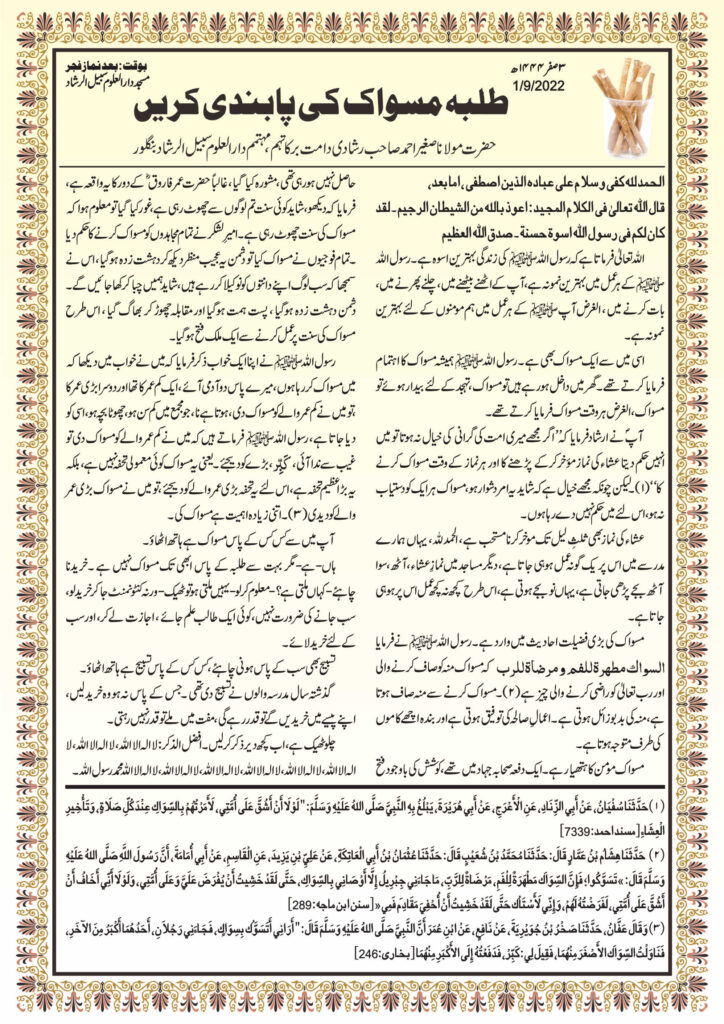 بوقت: بعد نماز فجر
مسجد دار العلوم سبیل الرشاد
۳ صفر ۱۴۴۴ھ
1/9/2022
طلبہ مسواک کی پابندی کریں
حضرت مولانا صغیر احمد صاحب رشادی دامت برکاتہم، مہتمم دار العلوم سبیل الرشاد بنگلور
الحمدلله کفی وسلام علی عباده الذین اصطفی، اما بعد،
قال الله تعالیٰ فی الکلام المجید: اعوذ بالله من الشیطان الرجیم۔ لقد
کان لکم فی رسول الله اسوة حسنة۔ صدق الله العظیم
اللہ تعالیٰ فرماتا ہے کہ رسول اللہ ﷺ کی زندگی بہترین اسوہ ہے۔ رسول اللہ
ﷺ کے ہر عمل میں بہترین نمونہ ہے، آپ کے اٹھنے بیٹھنے میں، چلنے پھرنے میں،
بات کرنے میں، الغرض آپ ﷺ کے ہر عمل میں ہم مؤمنوں کے لئے بہترین
نمونہ ہے۔
اسی میں سے ایک مسواک بھی ہے۔ رسول اللہ ﷺ ہمیشہ مسواک کا اہتمام
فرمایا کرتے تھے۔ گھر میں داخل ہو رہے ہیں تو مسواک، تہجد کے لئے بیدار ہوئے تو
مسواک، الغرض ہر وقت مسواک فرمایا کرتے تھے۔
آپؐ نے ارشاد فرمایا کہ ’’اگر مجھے میری امت کی گرانی کی خیال نہ ہوتا تو میں
انہیں حکم دیتا عشاء کی نماز مؤخر کر کے پڑھنے کا اور ہر نماز کے وقت مسواک کرنے
کا‘‘(۱)۔ لیکن چونکہ مجھے خیال ہے کہ شاید یہ امر دشوار ہو، مسواک ہر ایک کو دستیاب
نہ ہو، اس لئے میں حکم نہیں دے رہا ہوں۔
عشاء کی نماز بھی ثلث لیل تک مؤخر کرنا مستحب ہے، الحمد للہ، یہاں ہمارے
مدرسے میں اس پر یک گونہ عمل ہو ہی جاتا ہے، دیگر مساجد میں نماز عشاء، آٹھ، سوا
آٹھ بجے پڑھی جاتی ہے، یہاں نو بجے ہوتی ہے، اس طرح کچھ نہ کچھ عمل اس پر ہو ہی
جاتا ہے۔
مسواک کی بڑی فضیلت احادیث میں وارد ہے۔ رسول اللہ ﷺ نے فرمایا
السواك مطهرة للفم ومرضاة للرب کہ مسواک منہ کو صاف کرنے والی
اور رب تعالیٰ کو راضی کرنے والی چیز ہے (۲)۔ مسواک کرنے سے منہ صاف ہوتا
ہے، منہ کی بدبو زائل ہوتی ہے۔ اعمال صالحہ کی توفیق ہوتی ہے اور بندہ اچھے کاموں
کی طرف متوجہ ہوتا ہے۔
مسواک مؤمن کا ہتھیار ہے۔ ایک دفعہ صحابہ جہاد میں تھے، کوشش کی باوجود فتح
حاصل نہیں ہو رہی تھی، مشورہ کیا گیا، غالباً حضرت عمر فاروقؓ کے دور کا یہ واقعہ ہے،
فرمایا کہ دیکھو، شاید کوئی سنت تم لوگوں سے چھوٹ رہی ہے، غور کیا گیا تو معلوم ہوا کہ
مسواک کی سنت چھوٹ رہی ہے۔ امیر لشکر نے تمام مجاہدوں کو مسواک کرنے کا حکم دیا
۔ تمام فوجیوں نے مسواک کیا تو دشمن یہ عجیب منظر دیکھ کر دہشت زدہ ہو گیا، اس نے
سمجھا کہ سب لوگ اپنے دانتوں کو نوکیلا کر رہے ہیں، شاید ہمیں چبا کر کھا جائیں گے۔
دشمن دہشت زدہ ہو گیا، پست ہمت ہو گیا اور مقابلہ چھوڑ کر بھاگ گیا، اس طرح
مسواک کی سنت پر عمل کرنے سے ایک ملک فتح ہو گیا۔
رسول اللہ ﷺ نے اپنا ایک خواب ذکر فرمایا کہ میں نے خواب میں دیکھا کہ
میں مسواک کر رہا ہوں، میرے پاس دو آدمی آئے، ایک کم عمر کا تھا اور دوسرا بڑی عمر کا
، تو میں نے کم عمر والے کو مسواک دی، ہوتا ہے نا، جو مجمع میں کم سن ہو، چھوٹا بچہ ہو، اسی کو
دیا جاتا ہے، رسول اللہ ﷺ فرماتے ہیں کہ میں نے کم عمر والے کو مسواک دی تو
غیب سے ندا آئی، کَبِّر، بڑے کو دیجئے۔ یعنی یہ مسواک کوئی معمولی تحفہ نہیں ہے، بلکہ
یہ بڑا عظیم تحفہ ہے، اس لئے یہ تحفہ بڑی عمر والے کو دیجئے، تو میں نے مسواک بڑی عمر
والے کو دیدی (۳)۔ اتنی زیادہ اہمیت ہے مسواک کی۔
آپ میں سے کس کس کے پاس مسواک ہے ہاتھ اٹھاؤ۔
ہاں۔ ہے۔ مگر بہت سے طلبہ کے پاس ابھی تک مسواک نہیں ہے۔ خریدنا
چاہئے۔ کہاں ملتی ہے؟۔ معلوم کر لو۔ یہیں ملتی ہو تو ٹھیک۔ ورنہ کنٹونمنٹ جا کر خرید لو،
سب جانے کی ضرورت نہیں، کوئی ایک طالب علم جائے، اجازت لے کر، اور سب
کے لئے خرید لائے۔
تسبیح بھی سب کے پاس ہونی چاہئے، کس کس کے پاس تسبیح ہے ہاتھ اٹھاؤ۔
گذشتہ سال مدرسہ والوں نے تسبیح دی تھی۔ جس کے پاس نہ ہو وہ خرید لیں،
اپنے پیسے میں خریدیں گے تو قدر رہے گی، مفت میں ملے تو قدر نہیں رہتی۔
چلو ٹھیک ہے، اب کچھ دیر ذکر کر لیں۔ افضل الذکر: لا الہ الا اللہ، لا الہ الا اللہ، لا
الہ الا اللہ، لا الہ الا اللہ، لا الہ الا اللہ، لا الہ الا اللہ، لا الہ الا اللہ محمد رسول اللہ۔
(۱) حَدَّثَنَا سُفْيَانُ، عَنْ أَبِي الزِّنَادِ، عَنِ الْأَعْرَجِ، عَنْ أَبِي هُرَيْرَةَ، يَبْلُغُ بِهِ النَّبِيَّ صَلَّى اللهُ عَلَيْهِ وَسَلَّمَ: "لَوْلَا أَنْ أَشُقَّ عَلَى أُمَّتِي، لَأَمَرْتُهُمْ بِالسِّوَاكِ عِنْدَ كُلِّ صَلَاةٍ، وَتَأْخِيرِ
الْعِشَاءِ [مسند احمد: 7339]
(۲) حَدَّثَنَا هِشَامُ بْنُ عَمَّارٍ قَالَ: حَدَّثَنَا مُحَمَّدُ بْنُ شُعَيْبٍ قَالَ: حَدَّثَنَا عُثْمَانُ بْنُ أَبِي الْعَاتِكَةِ، عَنْ عَلِيِّ بْنِ يَزِيدَ، عَنِ الْقَاسِمِ، عَنْ أَبِي أُمَامَةَ، أَنَّ رَسُولَ اللَّهِ صَلَّى اللهُ عَلَيْهِ
وَسَلَّمَ قَالَ: »تَسَوَّكُوا؛ فَإِنَّ السِّوَاكَ مَطْهَرَةٌ لِلْفَمِ، مَرْضَاةٌ لِلرَّبِّ، مَا جَاءَنِي جِبْرِيلُ إِلَّا أَوْصَانِي بِالسِّوَاكِ، حَتَّى لَقَدْ خَشِيتُ أَنْ يُفْرَضَ عَلَيَّ وَعَلَى أُمَّتِي، وَلَوْلَا أَنِّي أَخَافُ أَنْ
أَشُقَّ عَلَى أُمَّتِي، لَفَرَضْتُهُ لَهُمْ، وَإِنِّي لَأَسْتَاكُ حَتَّى لَقَدْ خَشِيتُ أَنْ أُحْفِيَ مَقَادِمَ فَمِي« [سنن ابن ماجه: 289]
(۳) وَقَالَ عَفَّانُ، حَدَّثَنَا صَخْرُ بْنُ جُوَيْرِيَةَ، عَنْ نَافِعٍ، عَنْ ابْنِ عُمَرَ أَنَّ النَّبِيَّ صَلَّى اللهُ عَلَيْهِ وَسَلَّمَ قَالَ: "أَرَانِي أَتَسَوَّكُ بِسِوَاكٍ، فَجَاءَنِي رَجُلَانِ، أَحَدُهُمَا أَكْبَرُ مِنَ الْآخَرِ،
فَنَاوَلْتُ السِّوَاكَ الْأَصْغَرَ مِنْهُمَا، فَقِيلَ لِي: كَبِّرْ، فَدَفَعْتُهُ إِلَى الْأَكْبَرِ مِنْهُمَا [بخاری: 246]